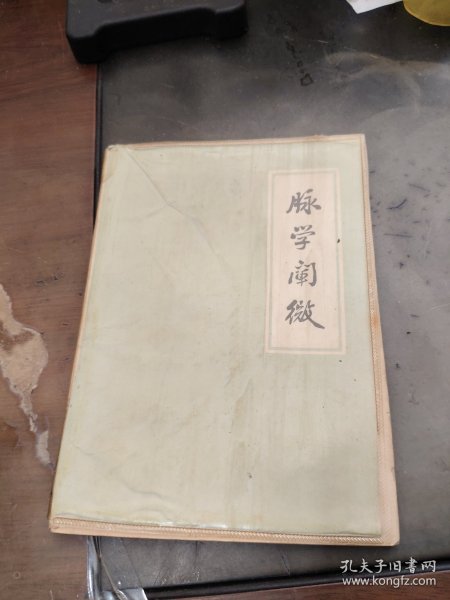 脉学阐微
孔夫子旧书网
www.kongfz.com